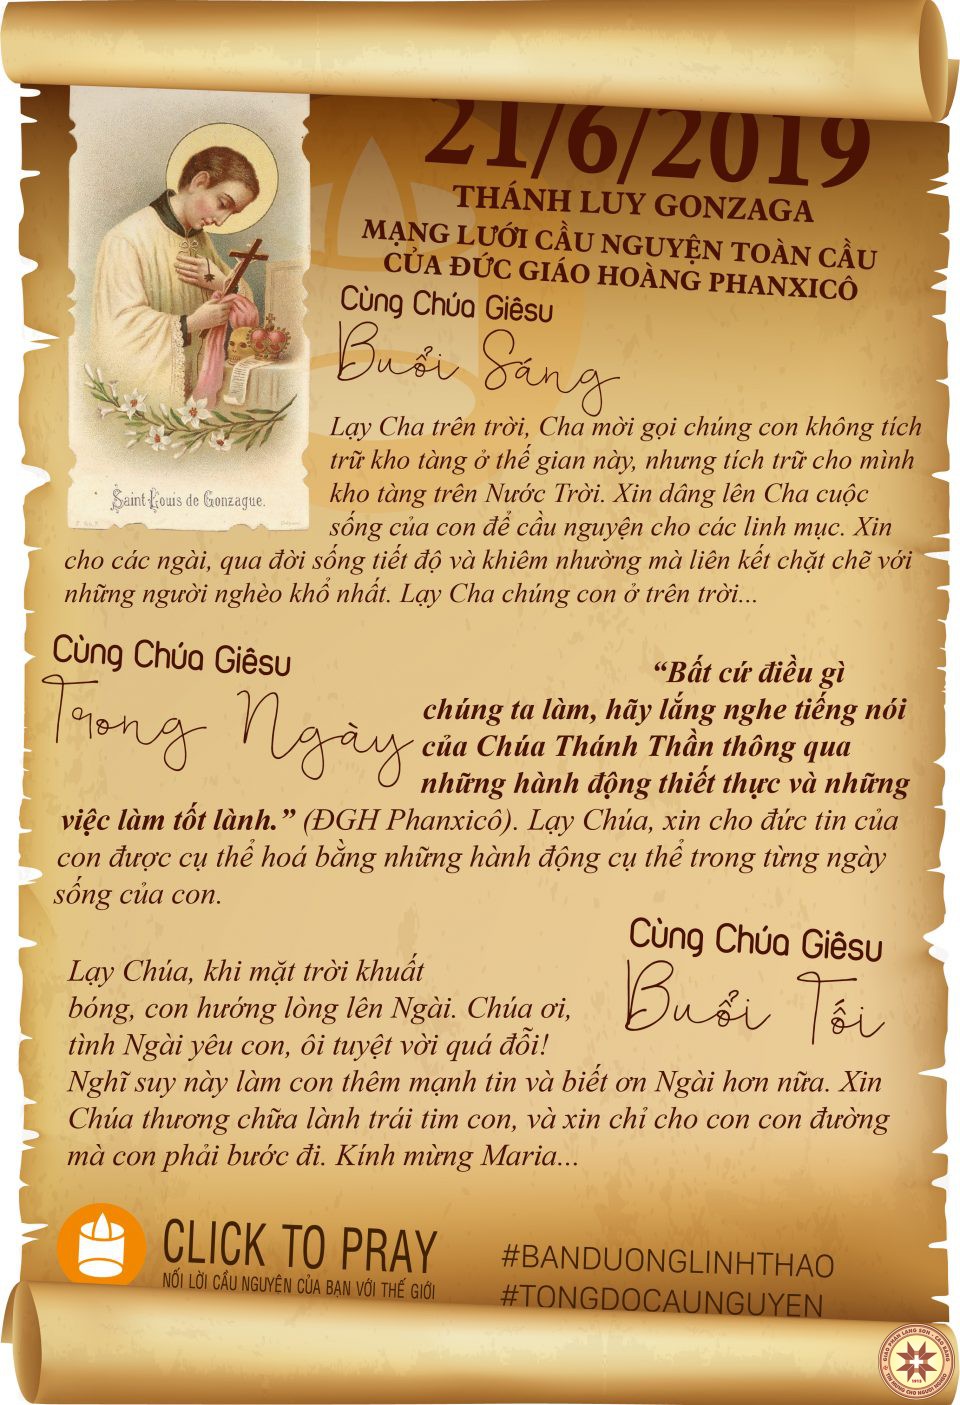 21/6/2019
THÁNH LUY GONZAGA
MẠNG LƯỚI CẦU NGUYỆN TOÀN CẦU
CỦA ĐỨC GIÁO HOÀNG PHANXICÔ
Cùng Chúa Giêsu
Buổi Sáng
Lạy Cha trên trời, Cha mời gọi chúng con không tích
trữ kho tàng ở thế gian này, nhưng tích trữ cho mình
kho tàng trên Nước Trời. Xin dâng lên Cha cuộc
sống của con để cầu nguyện cho các linh mục. Xin
cho các ngài, qua đời sống tiết độ và khiêm nhường mà liên kết chặt chẽ với
những người nghèo khổ nhất. Lạy Cha chúng con ở trên trời...
Saint Louis de Gonzague.
Cùng Chúa Giêsu
Trong Ngày
“Bất cứ điều gì
chúng ta làm, hãy lắng nghe tiếng nói
của Chúa Thánh Thần thông qua
những hành động thiết thực và những
việc làm tốt lành.” (ĐGH Phanxicô). Lạy Chúa, xin cho đức tin của
con được cụ thể hoá bằng những hành động cụ thể trong từng ngày
sống của con.
Cùng Chúa Giêsu
Buổi Tối
Lạy Chúa, khi mặt trời khuất
bóng, con hướng lòng lên Ngài. Chúa ơi,
tình Ngài yêu con, ôi tuyệt vời quá đỗi!
Nghĩ suy này làm con thêm mạnh tin và biết ơn Ngài hơn nữa. Xin
Chúa thương chữa lành trái tim con, và xin chỉ cho con con đường
mà con phải bước đi. Kính mừng Maria...
CLICK TO PRAY
NỐI LỜI CẦU NGUYỆN CỦA BẠN VỚI THẾ GIỚI
#BANDUONGLINHTHAO
#TONGDOCAUNGUYEN
GIÁO PHẬN LẠNG SƠN - CAO BẰNG
1913
TIN MỪNG CHO NGƯỜI NGHÈO